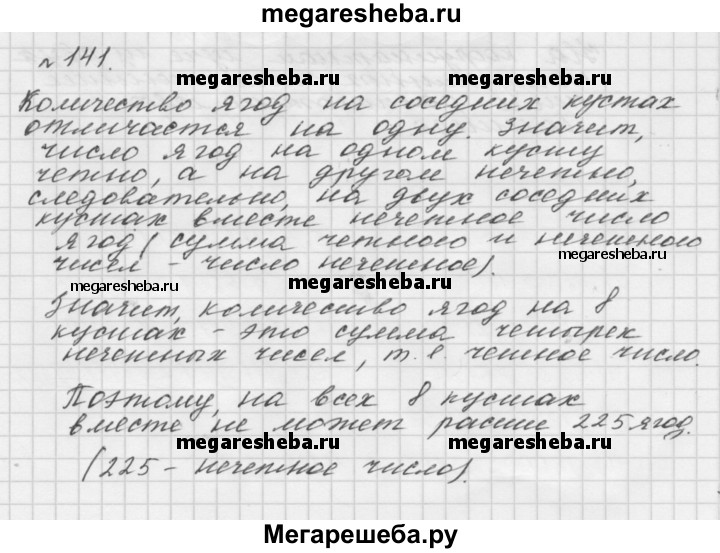 megaresheba.ru
№ 141.
megaresheba.ru megaresheba.ru
Количество ягод на соседних кустах
отличается на одну. Значит,
число ягод на одном кусту
четно, а на другом нечетно,
следовательно, на двух соседних
кустах вместе нечетное число
ягод (сумма четного и нечетного
чисел - число нечетное).
megaresheba.ru
megaresheba.ru megaresheba.ru
Значит, количество ягод на 8
кустах - это сумма четырех
нечетных чисел, т.е четное число.
Поэтому, на всех 8 кустах
вместе не может расти 225 ягод.
megaresheba.ru megaresheba.ru
(225 - нечетное число).
Мегарешеба.ру